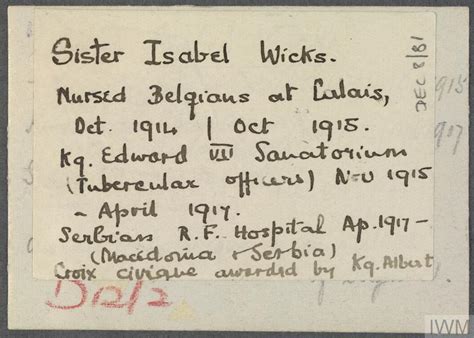 Sister Isabel Wicks.
Nursed Belgians at Calais,
Oct. 1914 | Oct 1915.
Kg. Edward VII Sanatorium
(Tubercular officers) Nov 1915
- April 1917.
Serbian R.F. Hospital Ap. 1917-
(Macedonia & Serbia)
Croix civique awarded by Kg. Albert
DEC 8/81
1915
1917
IWM